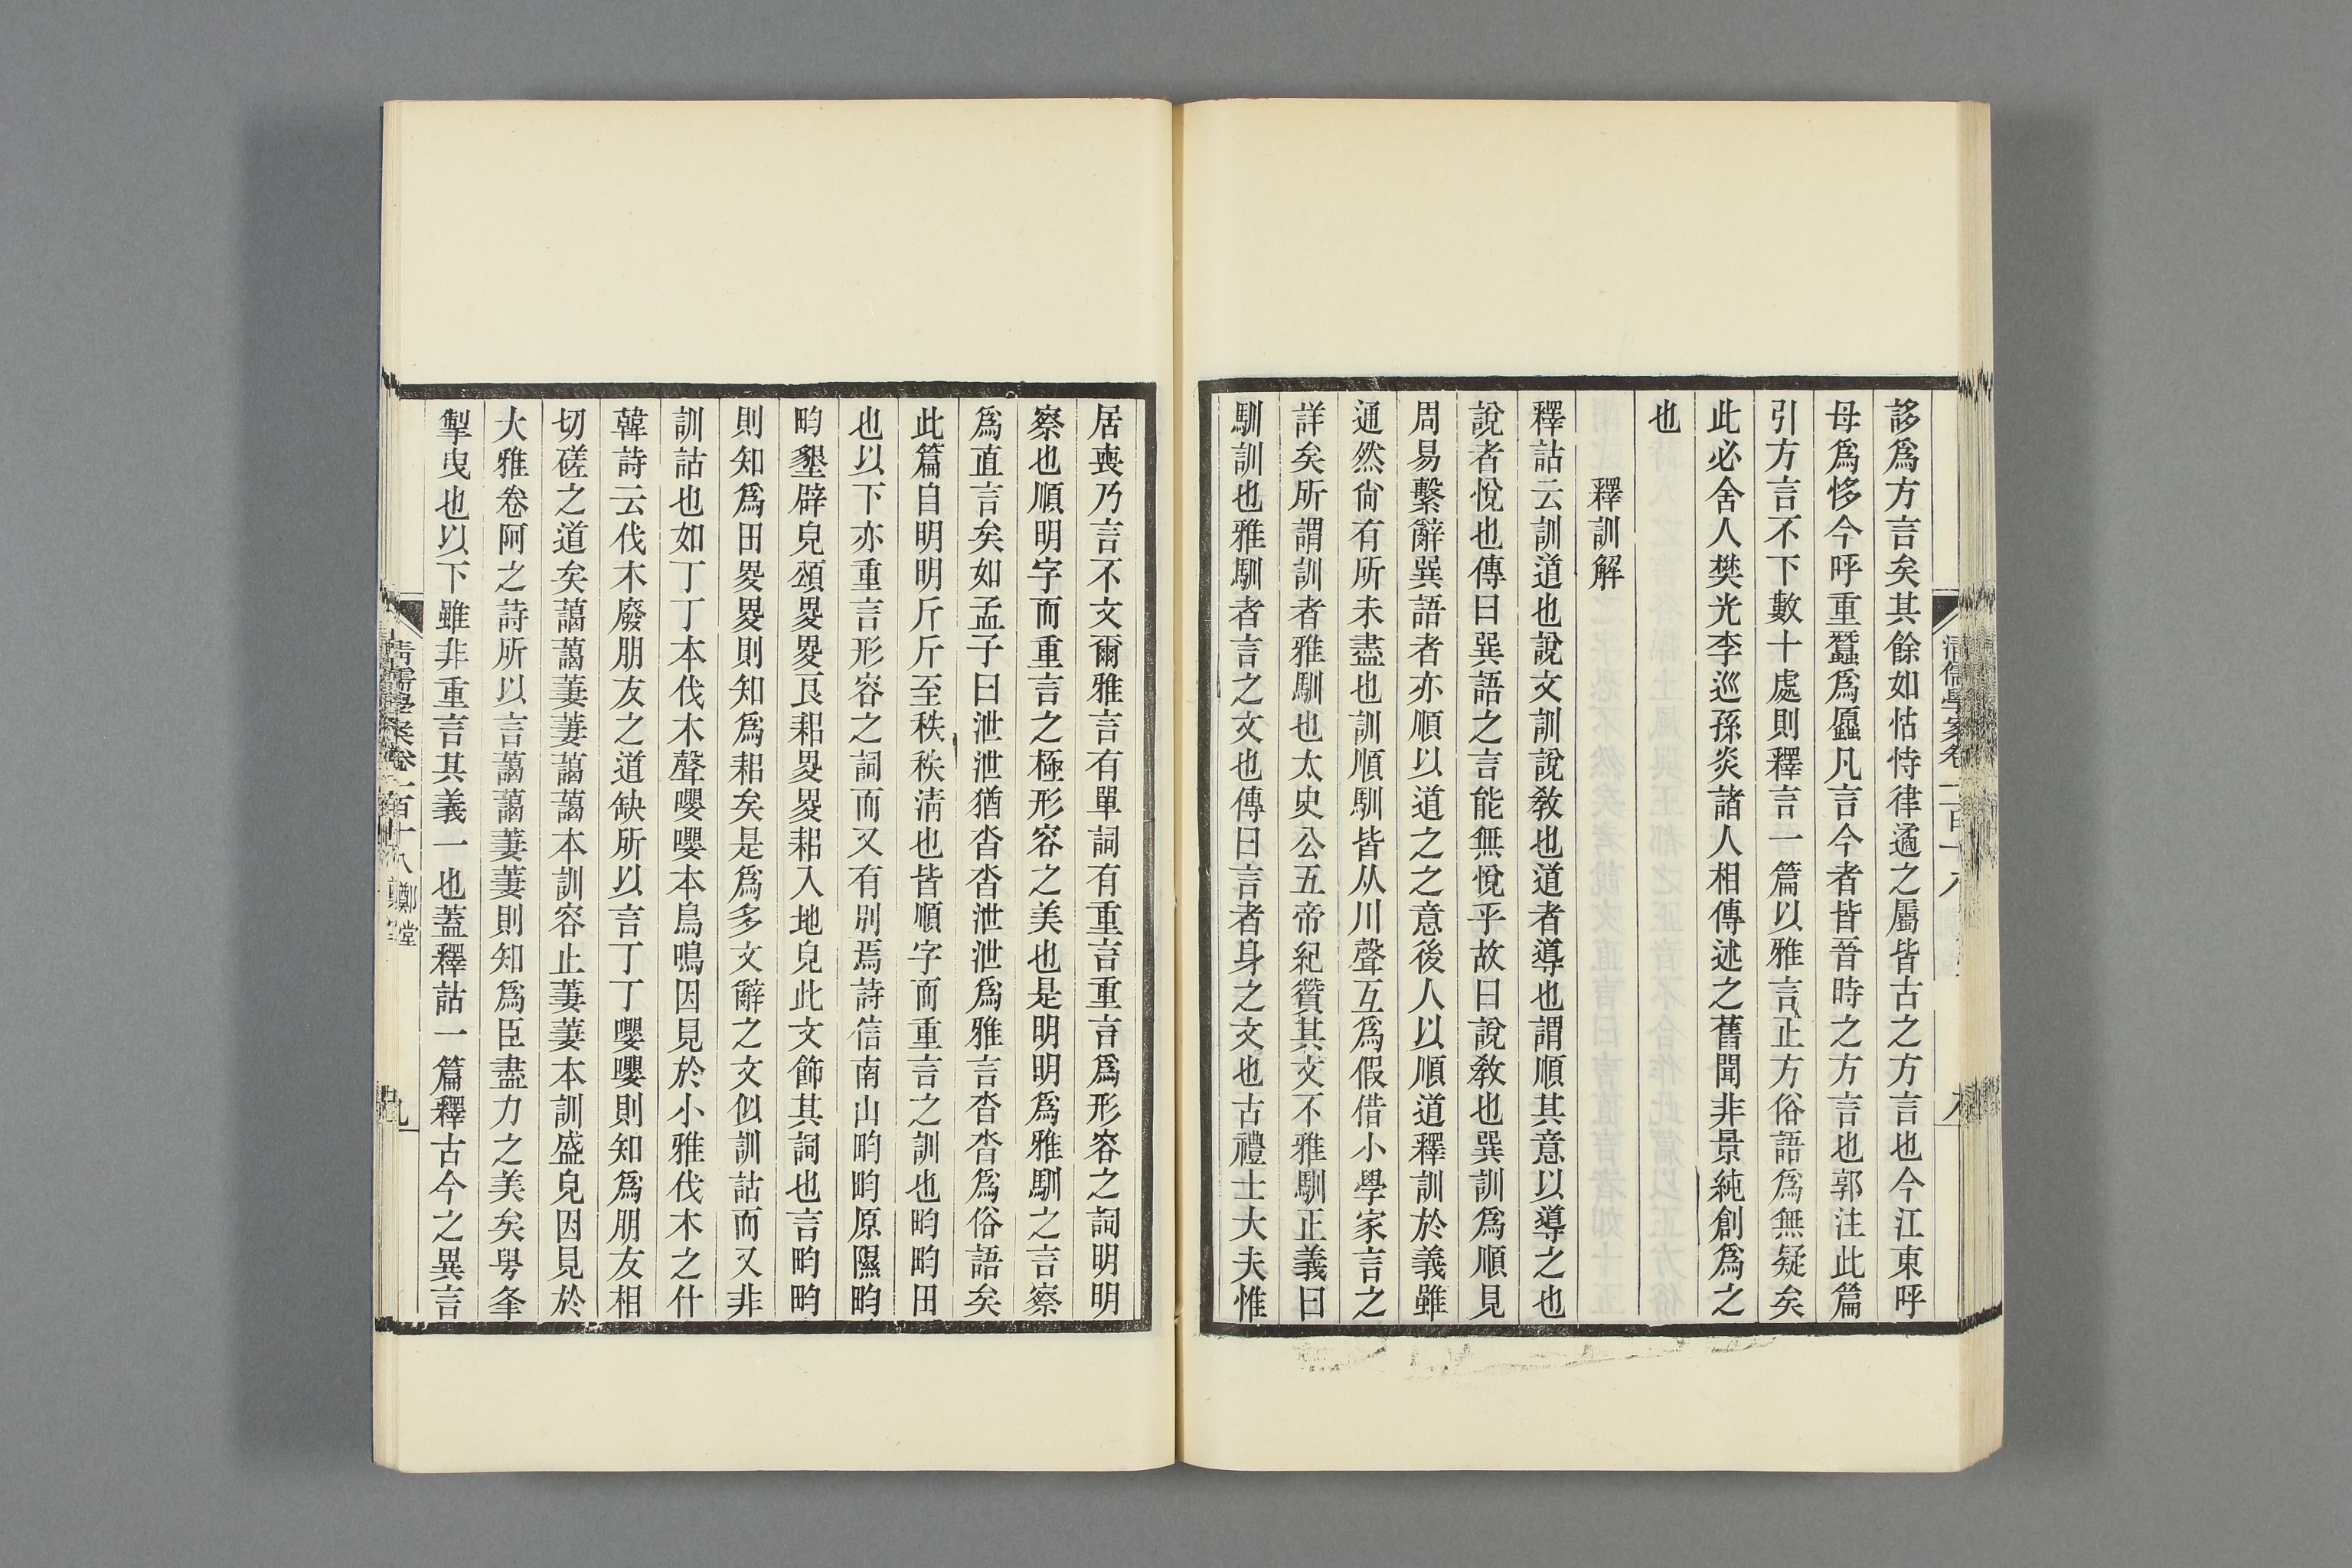 誃爲方言矣其餘如怙恃律遹之屬皆古之方言也今江東呼
母爲恀今呼重蠶爲䘉凡言今者皆晉時之方言也郭注此篇
引方言不下數十處則釋言一篇以雅言正方俗語爲無疑矣
此必舍人樊光李巡孫炎諸人相傳述之舊聞非景純創爲之
也
釋訓解
釋詁云訓道也說文訓說敎也道者導也謂順其意以導之也
說者悅也傳曰巽語之言能無悅乎故曰說敎也巽訓爲順見
周易繫辭巽語者亦順以道之之意後人以順道釋訓於義雖
通然尙有所未盡也訓順馴皆从川聲互爲假借小學家言之
詳矣所謂訓者雅馴也太史公五帝紀贊其文不雅馴正義曰
馴訓也雅馴者言之文也傳曰言者身之文也古禮士大夫惟
居喪乃言不文爾雅言有單詞有重言重言爲形容之詞明明
察也順明字而重言之極形容之美也是明明爲雅馴之言察
爲直言矣如孟子曰泄泄猶沓沓泄泄爲雅言沓沓爲俗語矣
此篇自明明斤斤至秩秩淸也皆順字而重言之訓也畇畇田
也以下亦重言形容之詞而又有別焉詩信南山畇畇原隰畇
畇墾辟皃頌畟畟良耜畟畟耜入地皃此文飾其詞也言畇畇
則知爲田畟畟則知爲耜矣是爲多文辭之文似訓詁而又非
訓詁也如丁丁本伐木聲嚶嚶本鳥鳴因見於小雅伐木之什
韓詩云伐木廢朋友之道缺所以言丁丁嚶嚶則知爲朋友相
切磋之道矣藹藹萋萋藹藹本訓容止萋萋本訓盛皃因見於
大雅卷阿之詩所以言藹藹萋萋則知爲臣盡力之美矣甹夆
掣曳也以下雖非重言其義一也蓋釋詁一篇釋古今之異言
清儒學案卷一百十八